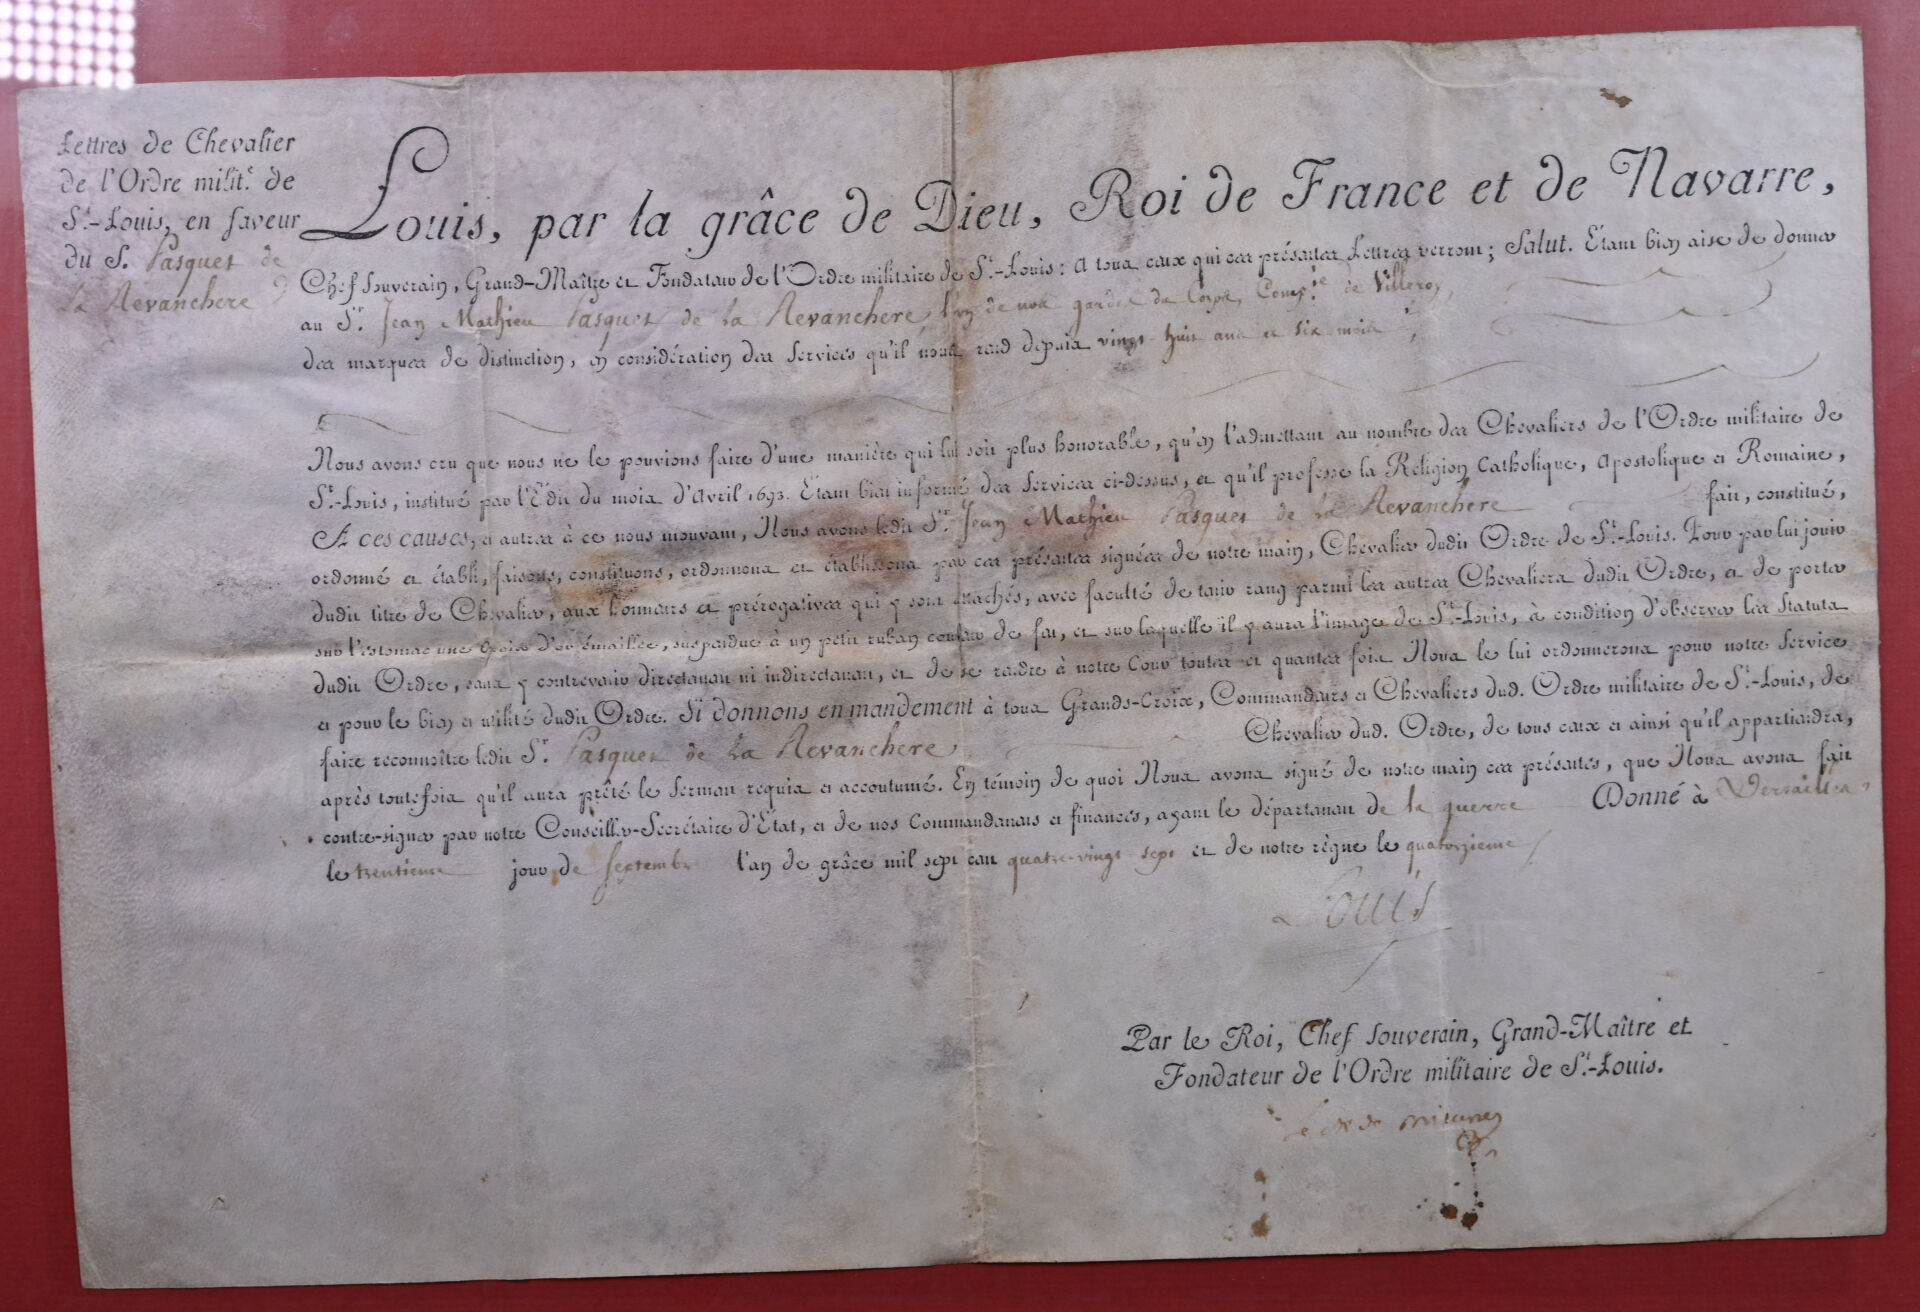 Lettres de Chevalier
de l'Ordre milit.e de
St.-Louis, en faveur
du S. Pasquet de
la Revanchere
Louis, par la grâce de Dieu, Roi de France et de Navarre,
Chef Souverain, Grand-Maître et Fondateur de l'Ordre militaire de St.-Louis: A tous ceux qui ces présentes Lettres verront; Salut. Étant bien aise de donner
au Sr. Jean Mathieu Pasquet de la Revanchere, l'un de nos gardes du Corps, Comp.ie de Villeroy,
des marques de distinction, en considération des Services qu'il nous rend depuis vingt-huit ans et six mois;
Nous avons cru que nous ne le pouvions faire d'une manière qui lui soit plus honorable, qu'en l'admettant au nombre des Chevaliers de l'Ordre militaire de
St.-Louis, institué par l'Édit du mois d'Avril 1693. Étant bien informé des Services ci-dessus, et qu'il professe la Religion Catholique, Apostolique et Romaine,
A CES CAUSES, et autres à ce nous mouvant, Nous avons ledit Sr. Jean Mathieu Pasquet de la Revanchere fait, constitué,
ordonné et établi, faisons, constituons, ordonnons et établissons par ces présentes signées de notre main, Chevalier dudit Ordre de St.-Louis. Pour par lui jouir
dudit titre de Chevalier, aux honneurs et prérogatives qui y sont attachés, avec faculté de tenir rang parmi les autres Chevaliers dudit Ordre, et de porter
sur l'estomac une Croix d'or émaillée, suspendue à un petit ruban couleur de feu, et sur laquelle il y aura l'image de St.-Louis, à condition d'observer les Statuts
dudit Ordre, sans y contrevenir directement ni indirectement, et de se rendre à notre Cour toutes et quantes fois Nous le lui ordonnerons pour notre Service
et pour le bien et utilité dudit Ordre. Si donnons en mandement à tous Grands-Croix, Commandeurs et Chevaliers dud. Ordre militaire de St.-Louis, de
faire reconnoître ledit Sr. Pasquet de la Revanchere, Chevalier dud. Ordre, de tous ceux et ainsi qu'il appartiendra,
après toutefois qu'il aura prêté le Serment requis et accoutumé. En témoin de quoi Nous avons signé de notre main ces présentes, que Nous avons fait
contre-signer par notre Conseiller-Secrétaire d'État, et de nos Commandements et finances, ayant le département de la guerre Donné à Versailles
le trentieme jour de septembre l'an de grâce mil sept cent quatre-vingt sept et de notre règne le quatorzieme
Louis
Par le Roi, Chef Souverain, Grand-Maître et
Fondateur de l'Ordre militaire de St.-Louis.